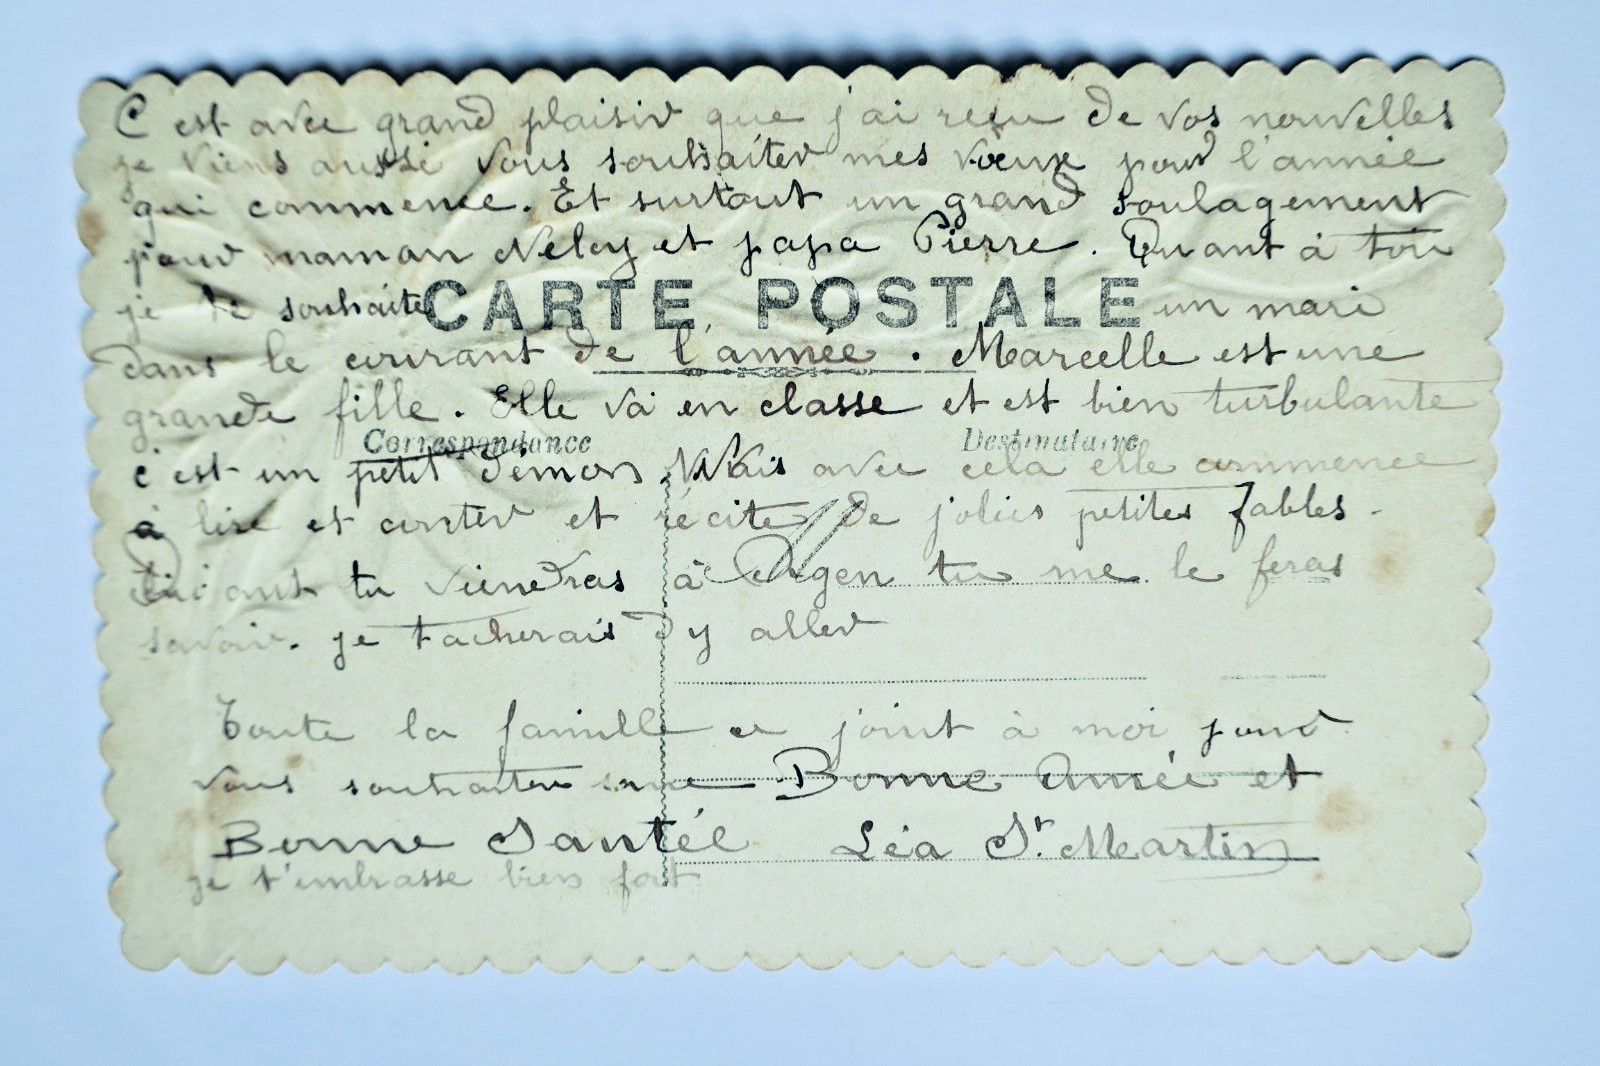 C est avec grand plaisir que j'ai reçu de vos nouvelles
je viens aussi vous souhaiter mes vœux pour l'année
qui commence. Et surtout un grand soulagement
pour maman Nelcy et papa Pierre. Quant à toi
je te souhaite un mari
CARTE POSTALE
dans le courant de l'année. Marcelle est une
grande fille. Elle va en classe et est bien turbulante
Correspondance Destinataire
c'est un petit démon. Mais avec cela elle commence
à lire et conter et récite de jolies petites fables.
tu viendras à Agen tu me le feras
savoir. je tacherais d'y aller
Toute la famille ce joint à moi pour
vous souhaiter une Bonne Année et
Bonne Santée Léa St. Martin
je t'embrasse bien fort